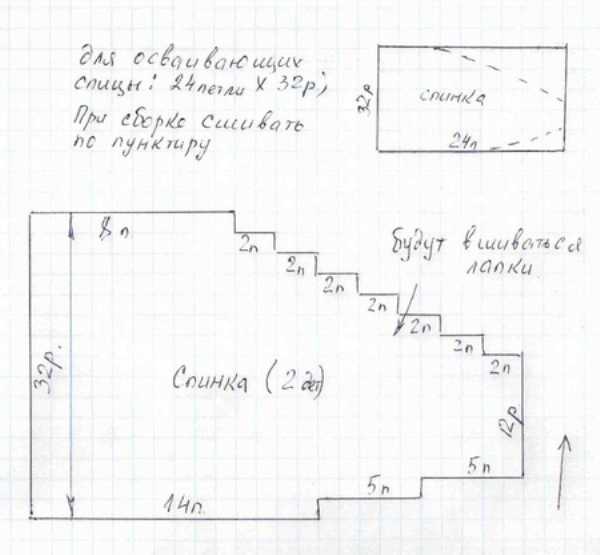 для осваивающих
спицы: 24 петли х 32р;
При сборке сшивать
по пунктиру
32р
спинка
24п
8 п
2п
2п
2п
2п
2п
2п
2п
будут вшиваться
лапки
32р.
Спинка (2 дет)
12р
5п
5п
14п